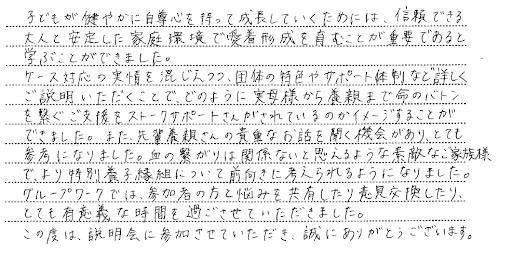 子どもが健やかに自尊心を持って成長していくためには、信頼できる
大人と安定した家庭環境で愛着形成を育むことが重要であると
学ぶことができました。
ケース対応の実情を混じえつつ、団体の特色やサポート体制など詳しく
ご説明いただくことで、どのように実母様から養親まで命のバトン
を繋ぐご支援をストークサポートさんがされているのかイメージすることが
できました。また、先輩養親さんの貴重なお話を聞く機会があり、とても
参考になりました。血の繋がりは関係ないと思えるような素敵なご家族様
で、より特別養子縁組について前向きに考えられるようになりました。
グループワークでは、参加者の方と悩みを共有したり意見交換したり、
とても有意義な時間を過ごさせていただきました。
この度は、説明会に参加させていただき、誠にありがとうございます。